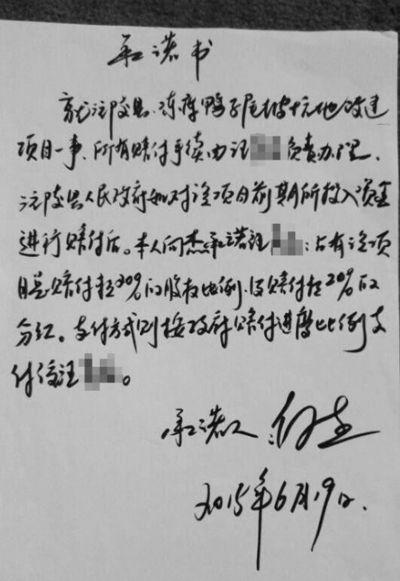 承诺书
就沅陵县、鸭子尾地改造
项目一事、所有赔付手续、由汪负责办理、
沅陵县人民政府如对该项目前期所投入资金
进行赔付后。本人向杰承诺汪:占有该项
目赔付款30%的股权比例,赔付款20%的
分红。支付方式则按政府赔付进度比例支
付给汪。
承诺人:向杰
2015年6月19日.